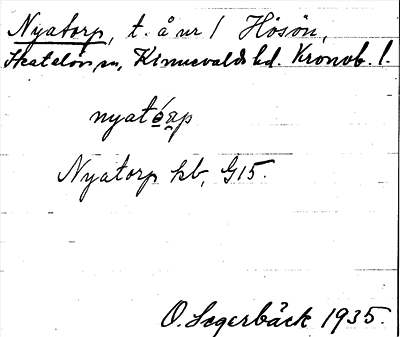 Nyatorp, t. å nr 1 Hösön,
Skatelöv sn, Kinnevalds hd. Kronob. l.
nyatórp
Nyatorp hb, G15.
O. Segerbäck 1935.